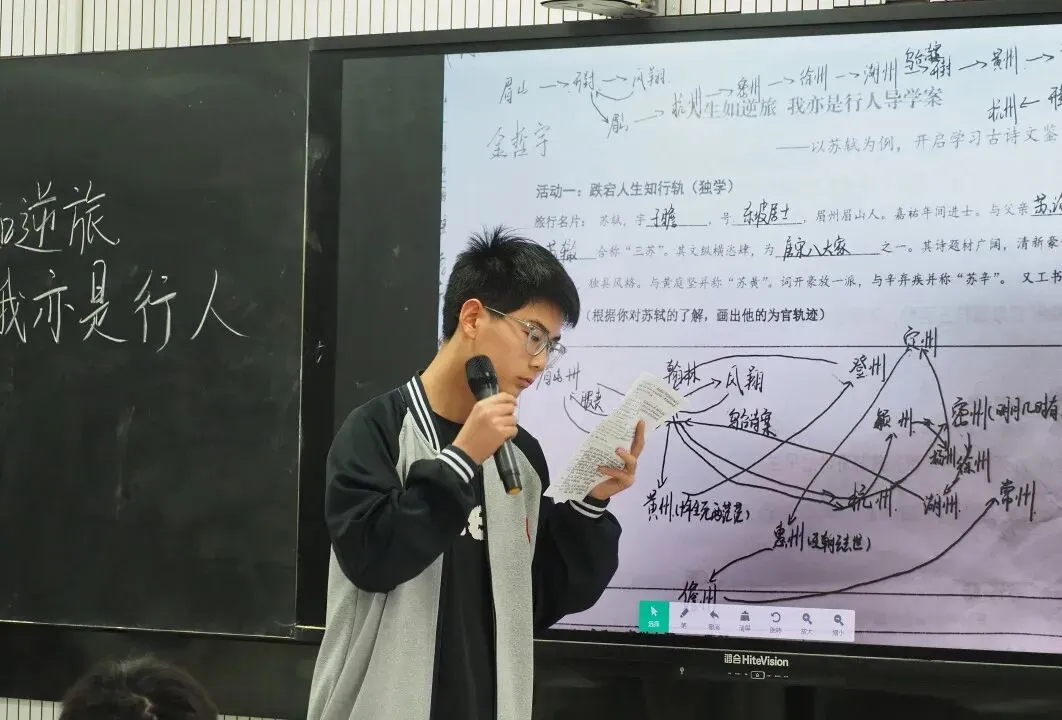 如逆旅
我亦是行人
眉山→开封→凤翔
密州→徐州→湖州 乌台诗案 开封→黄州→
眉山→杭州
杭州←
生如逆旅 我亦是行人导学案
金哲宇
——以苏轼为例，开启学习古诗文鉴
活动一：跌宕人生知行轨（独学）
旅行名片：苏轼，字子瞻，号东坡居士，眉州眉山人。嘉祐年间进士。与父亲苏洵
苏辙合称“三苏”。其文纵横恣肆，为唐宋八大家之一。其诗题材广阔，清新豪
独具风格。与黄庭坚并称“苏黄”。词开豪放一派，与辛弃疾并称“苏辛”。又工书
（根据你对苏轼的了解，画出他的为官轨迹）
定州
翰林
登州
凤翔
服丧
乌台诗案
颍州
密州(明月几时有
扬州
徐州
黄州
杭州
湖州
常州
惠州
儋州
选择
笔
撤销
清屏
旋转
放大
缩小
鸿合HiteVision